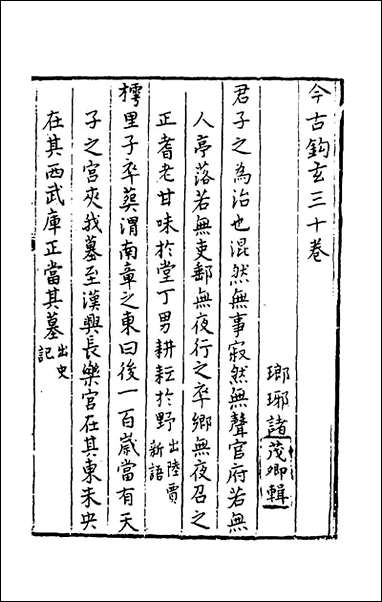 今古鈎玄三十卷
瑯琊諸茂卿輯
君子之為治也混然無事寂然無聲官府若無
人亭落若無吏郵無夜行之卒鄉無夜召之
正耆老甘味於堂丁男耕耘於野出陸賈新語
樗里子卒葬渭南章之東曰後一百嵗當有天
子之宮夾我墓至漢興長樂宮在其東未央
在其西武庫正當其墓出史記